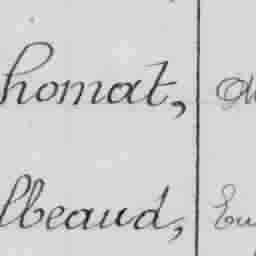 homat,
lbeaud, Eu